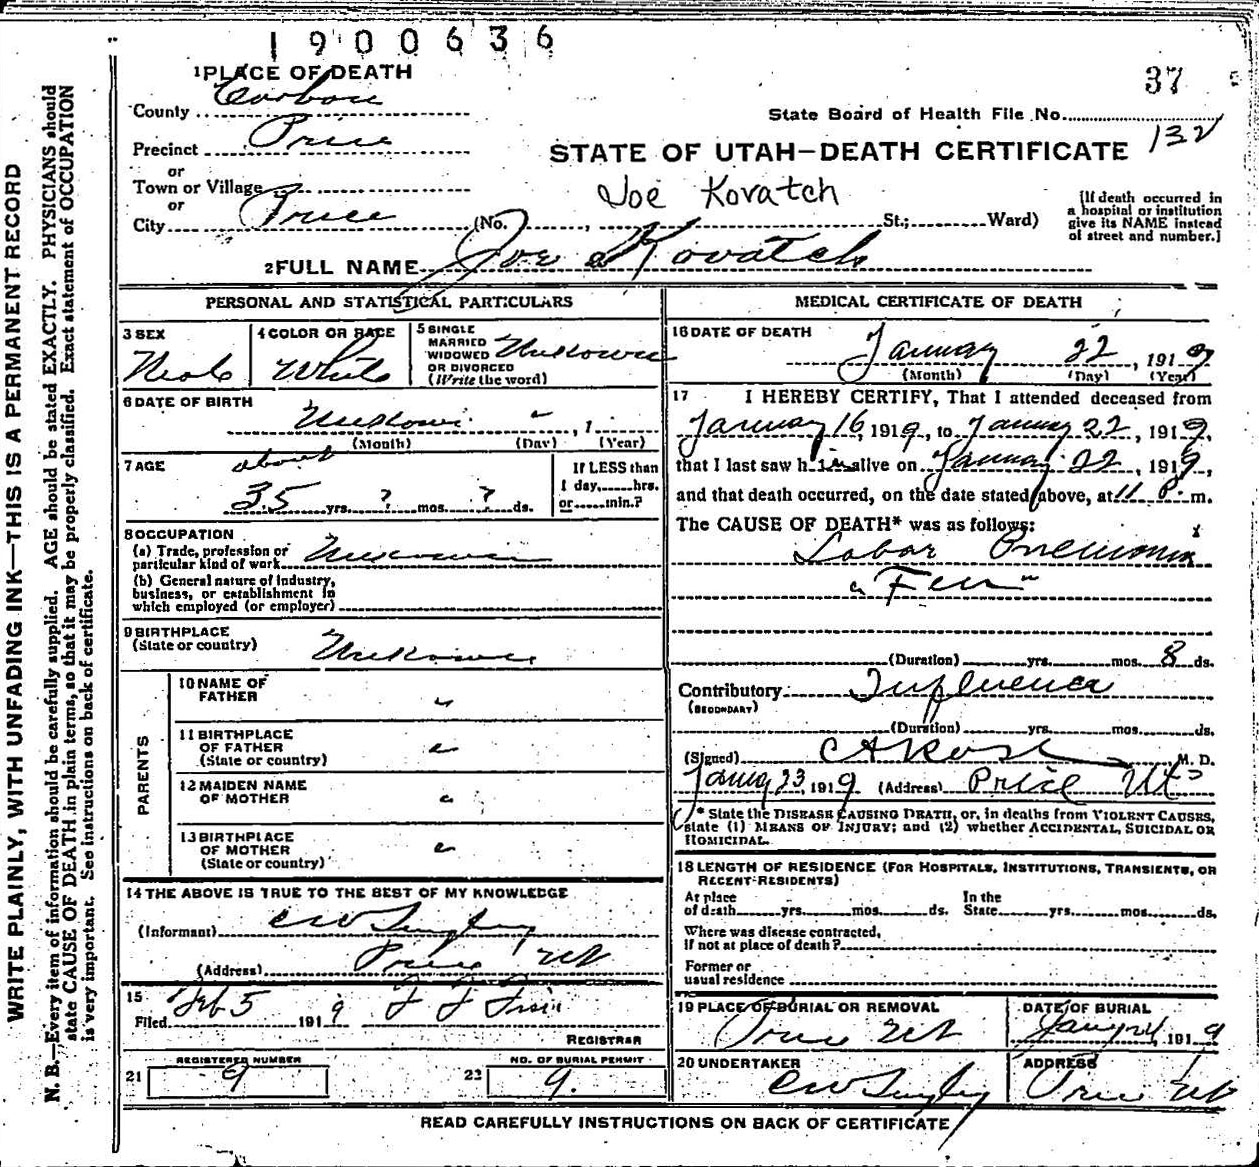 1900636
37
1 PLACE OF DEATH
County Carbon
State Board of Health File No.
132
Precinct Price
or
STATE OF UTAH—DEATH CERTIFICATE
Town or Village
Joe Kovatch
or
City Price (No. St.; Ward)
[If death occurred in
a hospital or institution
give its NAME instead
of street and number.]
2 FULL NAME Joe Kovatch
PERSONAL AND STATISTICAL PARTICULARS
3 SEX
Male
4 COLOR OR RACE
White
5 SINGLE
MARRIED
WIDOWED
OR DIVORCED
(Write the word)
Unknown
6 DATE OF BIRTH
Unknown " , 1
(Month) (Day) (Year)
7 AGE
about
35 yrs. ? mos. ? ds.
If LESS than
1 day, hrs.
or min.?
8 OCCUPATION
(a) Trade, profession or
particular kind of work Unknown
(b) General nature of industry,
business, or establishment in
which employed (or employer)
9 BIRTHPLACE
(State or country)
Unknown
PARENTS
10 NAME OF
FATHER
"
11 BIRTHPLACE
OF FATHER
(State or country)
"
12 MAIDEN NAME
OF MOTHER
"
13 BIRTHPLACE
OF MOTHER
(State or country)
"
14 THE ABOVE IS TRUE TO THE BEST OF MY KNOWLEDGE
(Informant)
(Address) Price Ut
15
Filed Feb 5 1919
REGISTRAR
REGISTERED NUMBER
21 9
NO. OF BURIAL PERMIT
22 9.
MEDICAL CERTIFICATE OF DEATH
16 DATE OF DEATH
January 22, 1919
(Month) (Day) (Year)
17 I HEREBY CERTIFY, That I attended deceased from
January 16, 1919, to January 22, 1919,
that I last saw him alive on January 22, 1919,
and that death occurred, on the date stated above, at 11 P. m.
The CAUSE OF DEATH* was as follows:
Lobar Pneumonia
(Duration) yrs. mos. 8 ds.
Contributory Influenca
(SECONDARY)
(Duration) yrs. mos. ds.
(Signed) M. D.
Jany 23, 1919 (Address) Price Ut
* State the DISEASE CAUSING DEATH, or, in deaths from VIOLENT CAUSES,
state (1) MEANS OF INJURY; and (2) whether ACCIDENTAL, SUICIDAL OR
HOMICIDAL.
18 LENGTH OF RESIDENCE (FOR HOSPITALS, INSTITUTIONS, TRANSIENTS, OR
RECENT RESIDENTS)
At place
of death yrs. mos. ds.
In the
State yrs. mos. ds.
Where was disease contracted,
if not at place of death?
Former or
usual residence
19 PLACE OF BURIAL OR REMOVAL
Price Ut
DATE OF BURIAL
Jany 24, 1919
20 UNDERTAKER
ADDRESS
Price Ut
READ CAREFULLY INSTRUCTIONS ON BACK OF CERTIFICATE
WRITE PLAINLY, WITH UNFADING INK—THIS IS A PERMANENT RECORD
N. B.—Every item of information should be carefully supplied. AGE should be stated EXACTLY. PHYSICIANS should
state CAUSE OF DEATH in plain terms, so that it may be properly classified. Exact statement of OCCUPATION
is very important. See instructions on back of certificate.